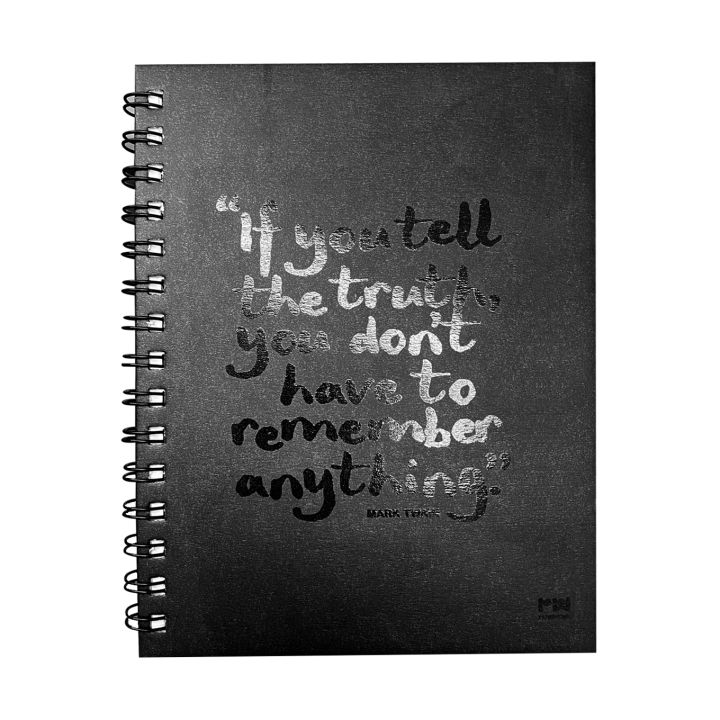 “If you tell
the truth,
you don't
have to
remember
anything.”
MARK TWAIN